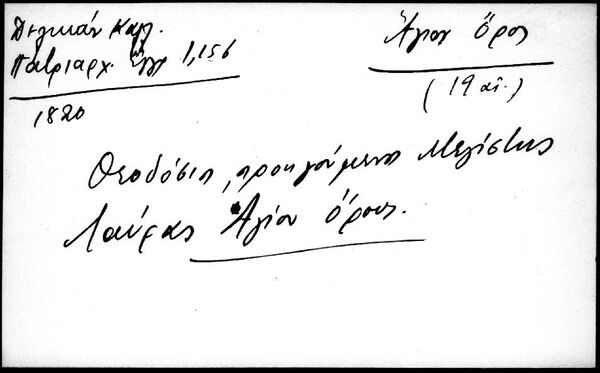 Δελικάν Καλ.
Πατριαρχ. Ἔγγρ 1,156
1820
Ἅγιον Ὄρος
(19 αἰ.)
Θεοδόσιος, προηγούμενος Μεγίστης
Λαύρας Ἁγίου Ὄρους.